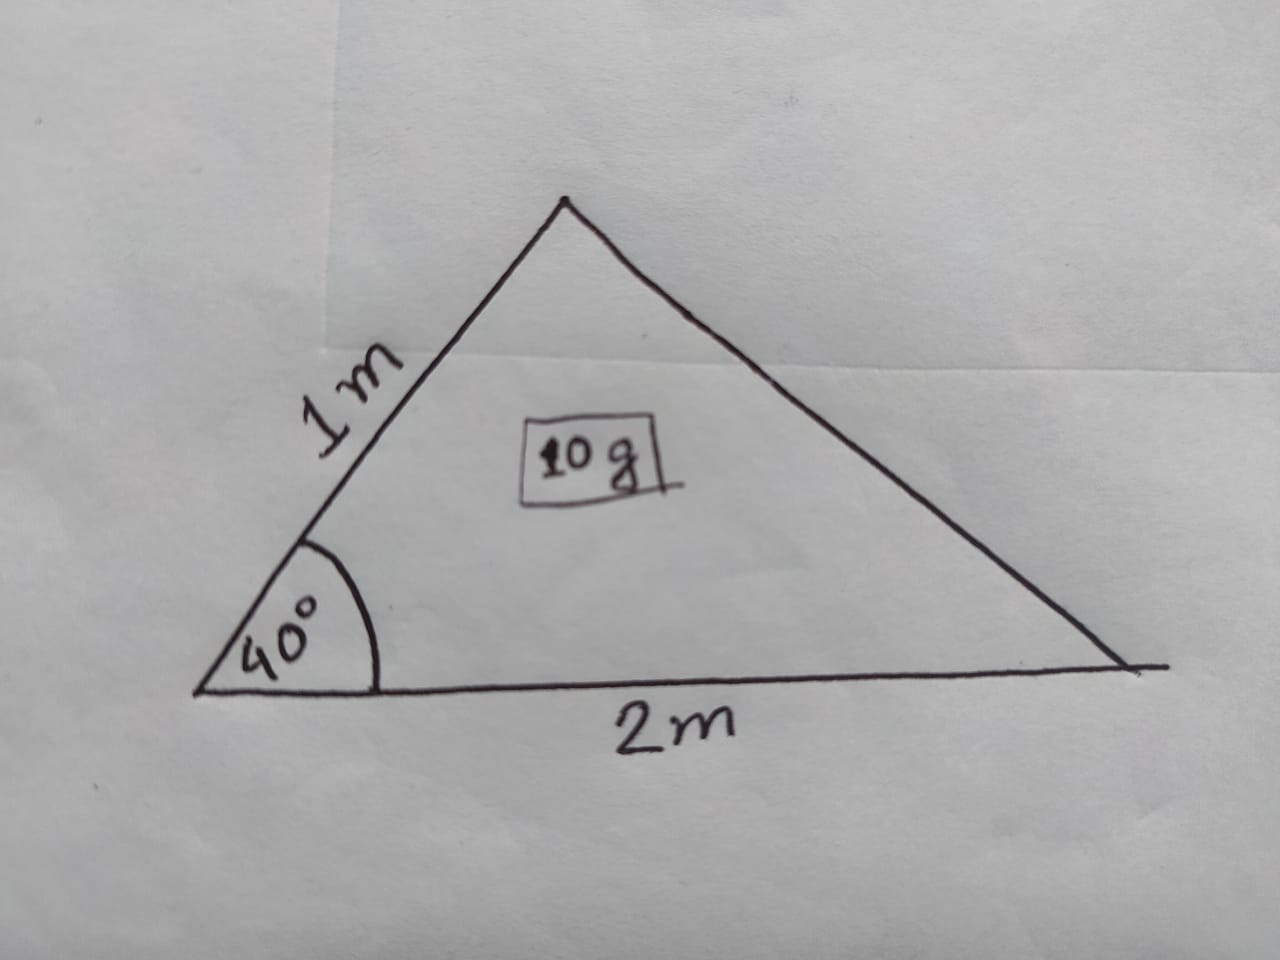 1m
10 g
40°
2m